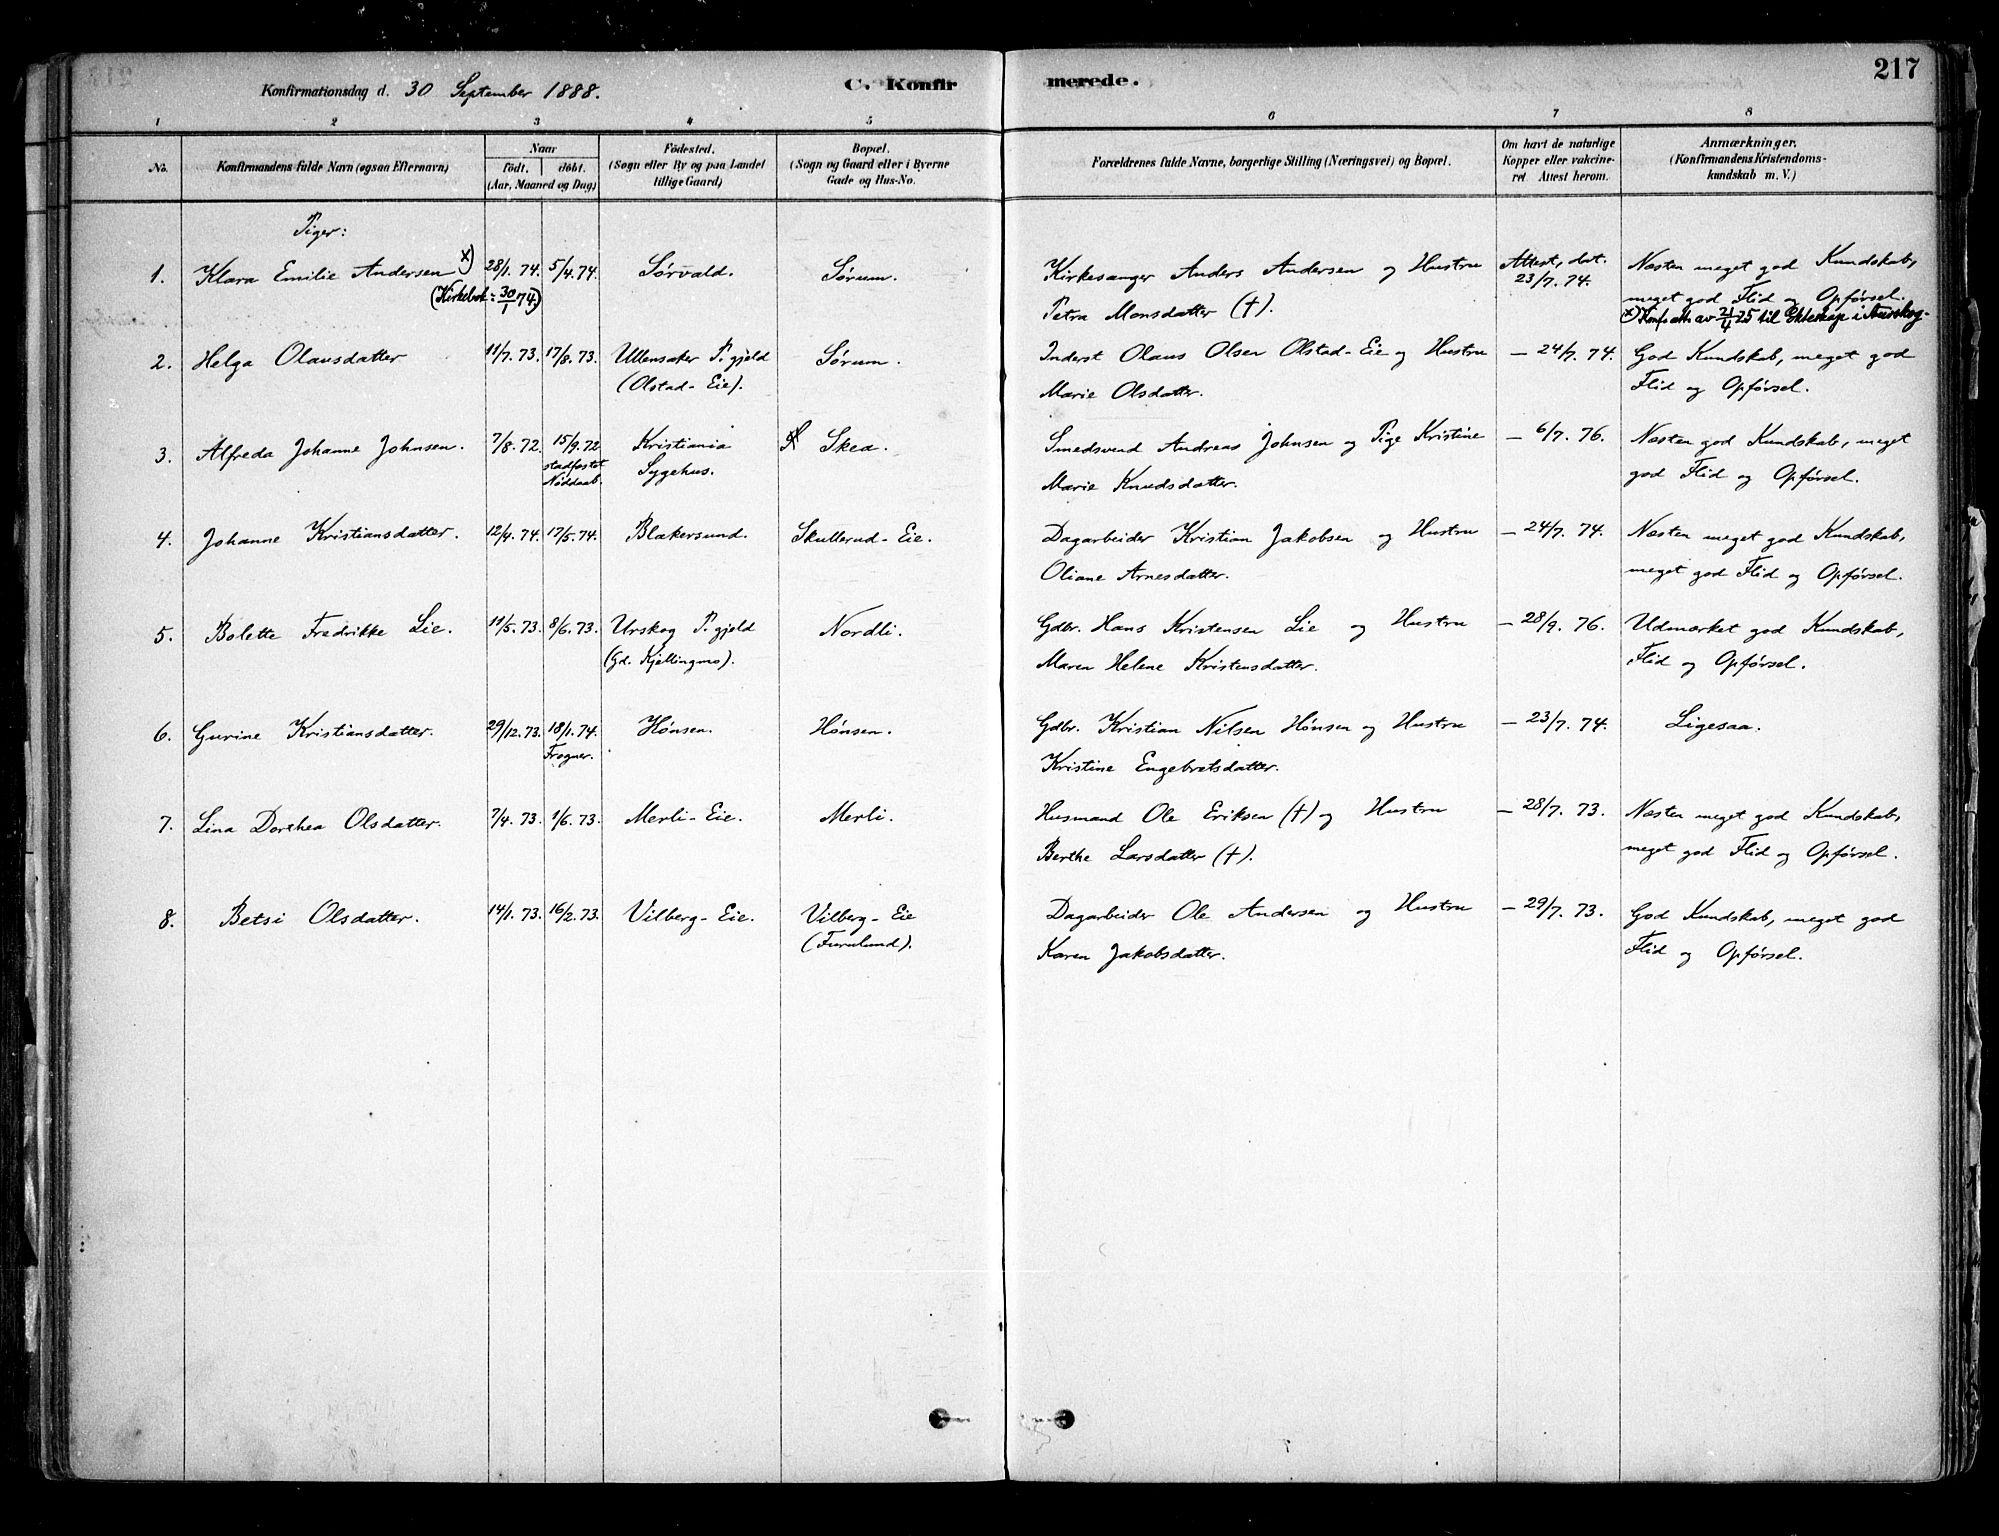 Konfirmationsdag d. 30 September 1888. C. Konfirmerede. 217
1 2 3 4 5 6 7 8
No. Konfirmandens fulde Navn (ogsaa Efternavn) Naar födt. döbt. (Aar, Maaned og Dag) Födested. (Sogn eller By og paa Landet tillige Gaard) Bopæl. (Sogn og Gaard eller i Byerne Gade og Hus-No. Forældrenes fulde Navne, borgerlige Stilling (Næringsvei) og Bopæl. Om havt de naturlige Kopper eller vakcineret Attest herom. Anmærkninger. (Konfirmandens Kristendomskundskab m. V.)
Piger:
1. Klara Emilie Andersen x) 28/1. 74. 5/4. 74. Sørvald. Sørum. Kirkesanger Anders Andersen og Hustru Attest, dat. Næsten meget god Kundskab,
(Kirkebok: 30/1 74) Petra Monsdatter (†). 23/7. 74. meget god Flid og Opførsel.
x) Konf. att. av 21/4 25 til Ekteskap i Aurskog
2. Helga Olausdatter 11/7. 73. 17/8. 73. Ullensaker P. gjeld Sørum. Inderst Olaus Olsen Olstad-Eie og Hustru — 24/7. 74. God Kundskab, meget god
(Olstad-Eie). Marie Olsdatter. Flid og Opførsel.
3. Alfreda Johanne Johnsen. 7/8. 72. 15/9. 72 Kristiania Skea. Smedsvend Andreas Johnsen og Pige Kristine — 6/7. 76. Næsten god Kundskab, meget
stadfæstet Nøddaab. Sygehus. Marie Knudsdatter. god Flid og Opførsel.
4. Johanne Kristiansdatter. 12/4. 74. 17/5. 74. Blakersund. Skullerud-Eie. Dagarbeider Kristian Jakobsen og Hustru — 24/7. 74. Næsten meget god Kundskab,
Oliane Arnesdatter. meget god Flid og Opførsel.
5. Bolette Fredrikke Lie. 11/5. 73. 8/6. 73. Urskog P. gjeld Nordli. Gdbr. Hans Kristensen Lie og Hustru — 28/9. 76. Udmærket god Kundskab,
(Gd. Kjellingmo). Maren Helene Kristensdatter. Flid og Opførsel.
6. Gurine Kristiansdatter. 29/12. 73. 18/1. 74. Hønsen. Hønsen. Gdbr. Kristian Nilsen Hønsen og Hustru — 23/7. 74. Ligesaa.
Frogner. Kristine Engebretsdatter.
7. Lina Dorthea Olsdatter. 7/4. 73. 1/6. 73. Merli-Eie. Merli. Husmand Ole Eriksen (†) og Hustru — 28/7. 73. Næsten meget god Kundskab,
Berthe Larsdatter (†). meget god Flid og Opførsel.
8. Betsi Olsdatter. 14/1. 73. 16/2. 73. Vilberg-Eie. Vilberg-Eie Dagarbeider Ole Andersen og Hustru — 29/7. 73. God Kundskab, meget god
(Furulund). Karen Jakobsdatter. Flid og Opførsel.